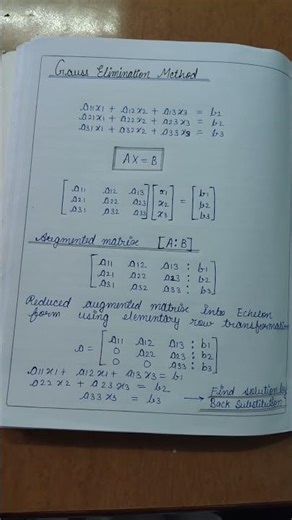 Gauss Elimination Method
a11x1 + a12x2 + a13x3 = b2
a21x1 + a22x2 + a23x3 = b2
a31x1 + a32x2 + a33x3 = b3
AX = B
[a11 a12 a13] [x1] = [b1]
[a21 a22 a23] [x2] [b2]
[a31 a32 a33] [x3] [b3]
Augmented matrix [A:B]
[a11 a12 a13 : b1]
[a21 a22 a23 : b2]
[a31 a32 a33 : b3]
Reduced augmented matrix into Echelon
form using elementary row transformation
a11 a12 a13 : b1
0 a22 a23 : b2
0 0 a33 : b3
a11x1 + a12x2 + a13x3 = b1
a22x2 + a23x3 = b2
a33x3 = b3 → Find solution by
Back Substitution